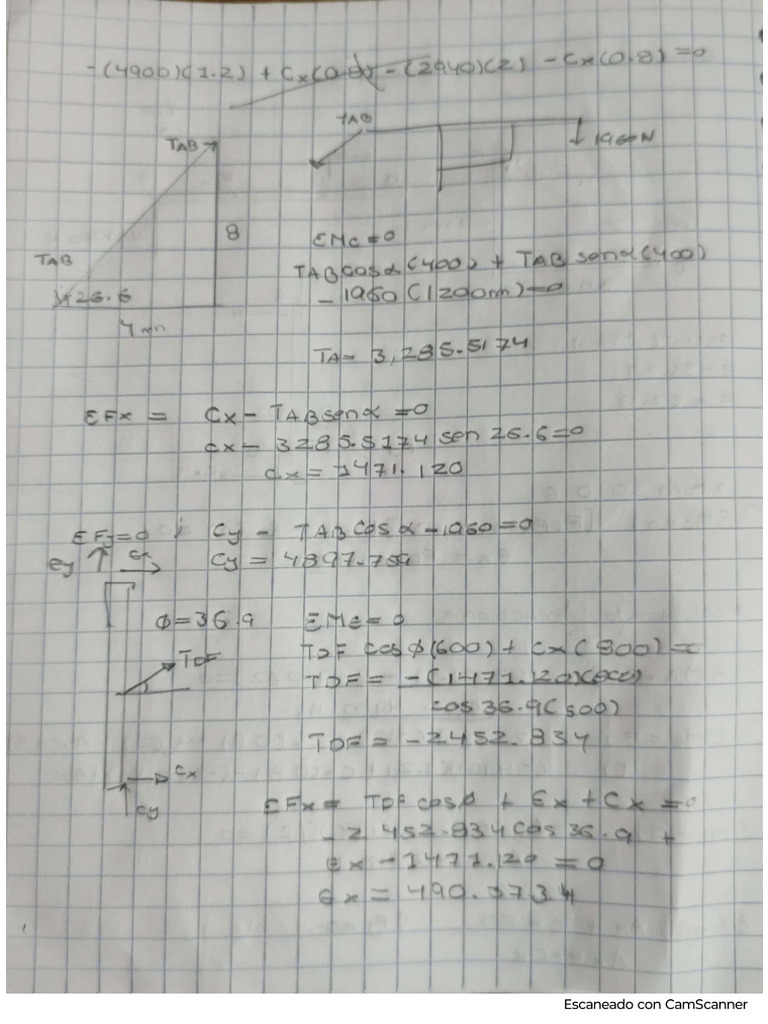 -(4900)(1.2) + Cx(0.8) - (2940)(2) - Cx(0.8) = 0
TAB
1960N
TAB
8
TAB
26.6
4m
ΣMc = 0
TABcosα(400) + TAB senα(400)
- 1960(1200m) = 0
TA = 3,285.5174
ΣFx = Cx - TABsenα = 0
Cx - 3285.5174 sen 26.6 = 0
Cx = 1471.120
ΣFy = 0 ; Cy - TABcosα - 1960 = 0
Cy = 4897.759
ey
ex
ϕ = 36.9
ΣMe = 0
TDF cosϕ(600) + Cx(800) = 0
TDF = -(1471.120)(800)
cos 36.9(600)
TDF
TDF = -2452.834
Cx
Cy
ΣFx = TDF cosϕ + Ex + Cx = 0
- 2452.834 cos 36.9 +
ex - 1471.120 = 0
ex = 490.3734
Escaneado con CamScanner